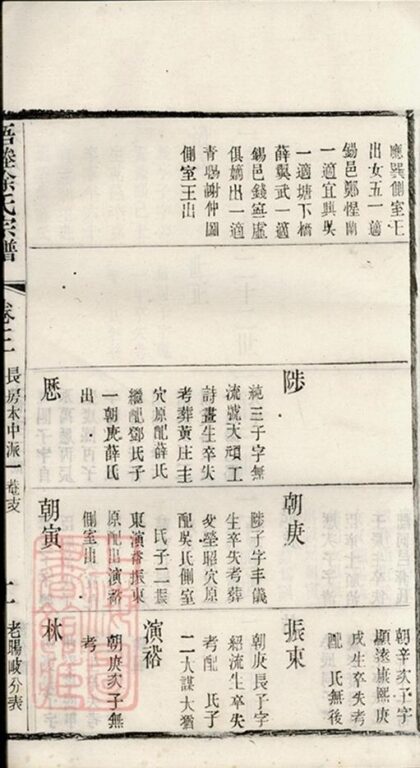 應巽側室王
出女五一適
錫邑鄭惺蘭
一適宜興吳
一適塘下橋
薛巽武一適
錫邑錢寧虛
俱嫡出一適
青暘謝仲圖
側室王出
陟
純三子字無
流號大頑工
詩畫生卒失
考葬黃庄主
穴原配薛氏
繼配鄧氏子
一朝庚薛氏
出
歷
朝庚
陟子字丰儀
生卒失考葬
父塋昭穴原
配吳氏側室
氏子二振
東演裕振東
原配出演裕
側室出
朝寅
朝辛次子字
顯遠康熙庚
戌生卒失考
配 氏無後
振東
朝庚長子字
紹流生卒失
考配 氏子
二大謀大猶
演裕
朝庚次子無
考
林
梧塍徐氏宗譜
卷十一
長房木中派一菴支
老暘岐分表